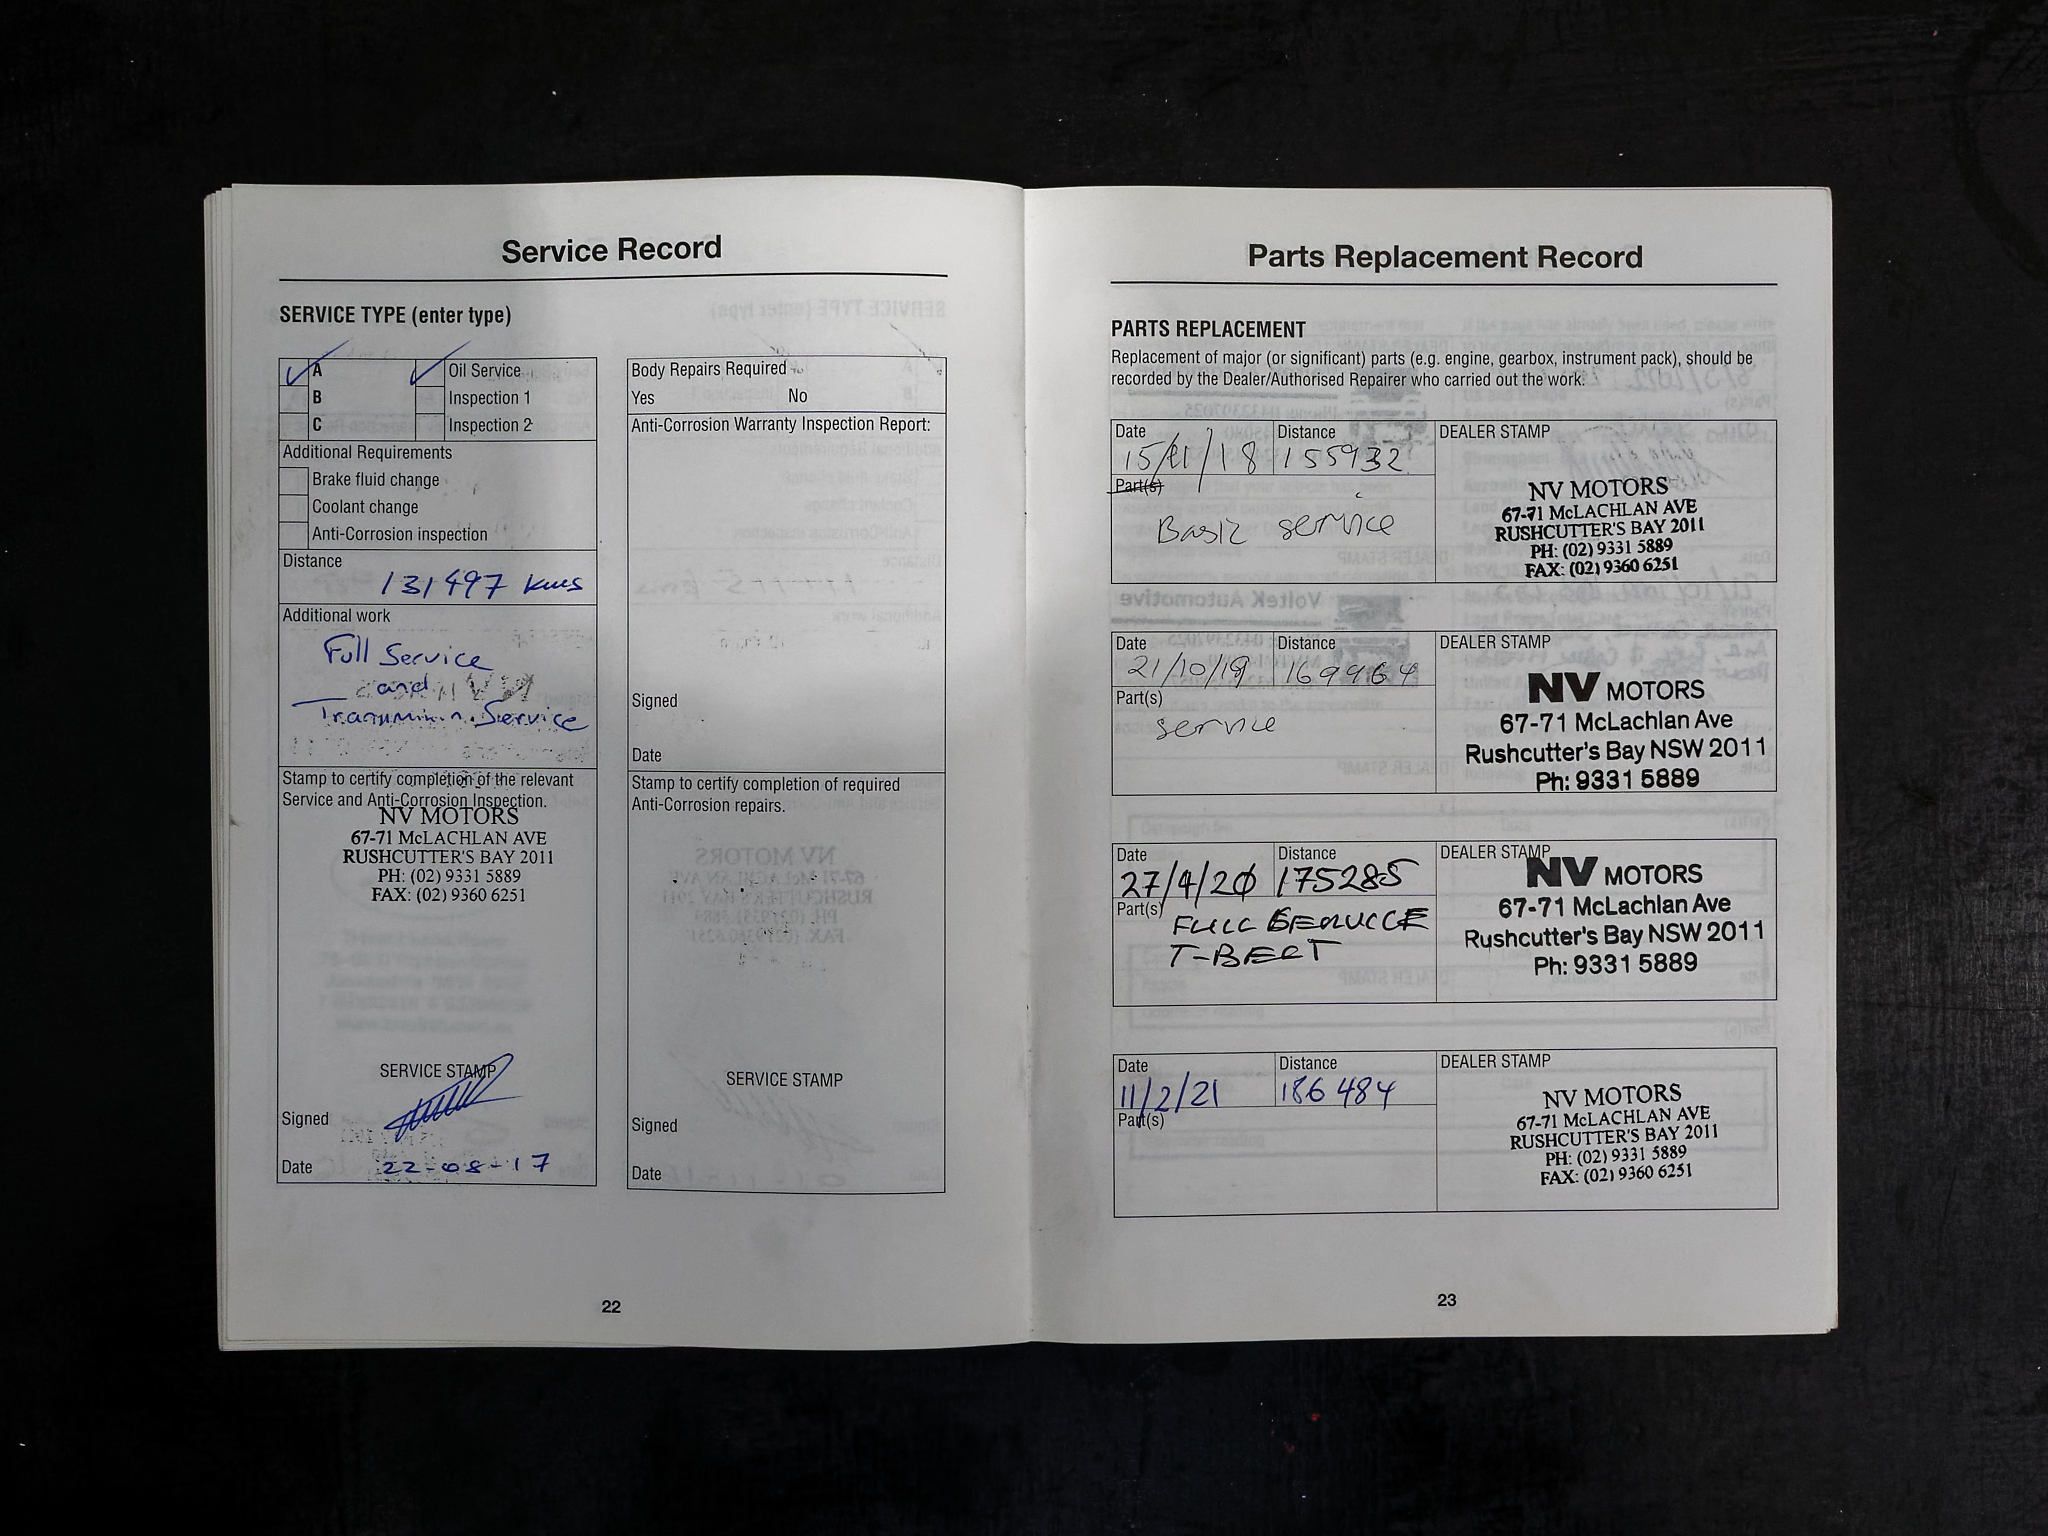 Service Record
SERVICE TYPE (enter type)
A
Oil Service
B
Inspection 1
C
Inspection 2
Additional Requirements
Brake fluid change
Coolant change
Anti-Corrosion inspection
Distance
131497 kms
Additional work
Full Service
and
Service
Stamp to certify completion of the relevant
Service and Anti-Corrosion Inspection.
NV MOTORS
67-71 McLACHLAN AVE
RUSHCUTTER'S BAY 2011
PH: (02) 9331 5889
FAX: (02) 9360 6251
SERVICE STAMP
Signed
Date 22-08-17
Body Repairs Required
Yes No
Anti-Corrosion Warranty Inspection Report:
Signed
Date
Stamp to certify completion of required
Anti-Corrosion repairs.
SERVICE STAMP
Signed
Date
22
Parts Replacement Record
PARTS REPLACEMENT
Replacement of major (or significant) parts (e.g. engine, gearbox, instrument pack), should be
recorded by the Dealer/Authorised Repairer who carried out the work.
Date Distance DEALER STAMP
155932
Part(s)
Basic service
NV MOTORS
67-71 McLACHLAN AVE
RUSHCUTTER'S BAY 2011
PH: (02) 9331 5889
FAX: (02) 9360 6251
Date Distance DEALER STAMP
21/10/19 169964
Part(s)
service
NV MOTORS
67-71 McLachlan Ave
Rushcutter's Bay NSW 2011
Ph: 9331 5889
Date Distance DEALER STAMP
27/4/20 175285
Part(s)
FULL SERVICE
T-BELT
NV MOTORS
67-71 McLachlan Ave
Rushcutter's Bay NSW 2011
Ph: 9331 5889
Date Distance DEALER STAMP
11/2/21 186484
Part(s)
NV MOTORS
67-71 McLACHLAN AVE
RUSHCUTTER'S BAY 2011
PH: (02) 9331 5889
FAX: (02) 9360 6251
23